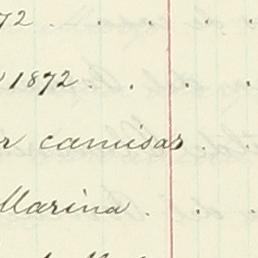 72 . . . .
1872 . . . .
r camisas . .
Marina . . .